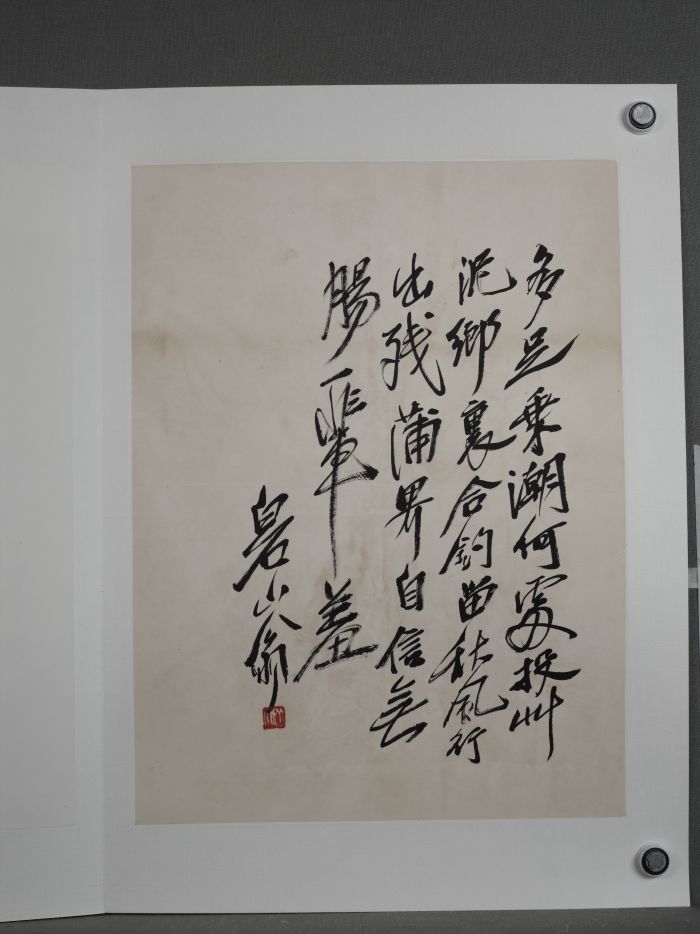 多足乘潮何處投艸
泥鄉裏合鈎留秋風行
出残蒲界自信無
腸輩羞
白石山翁